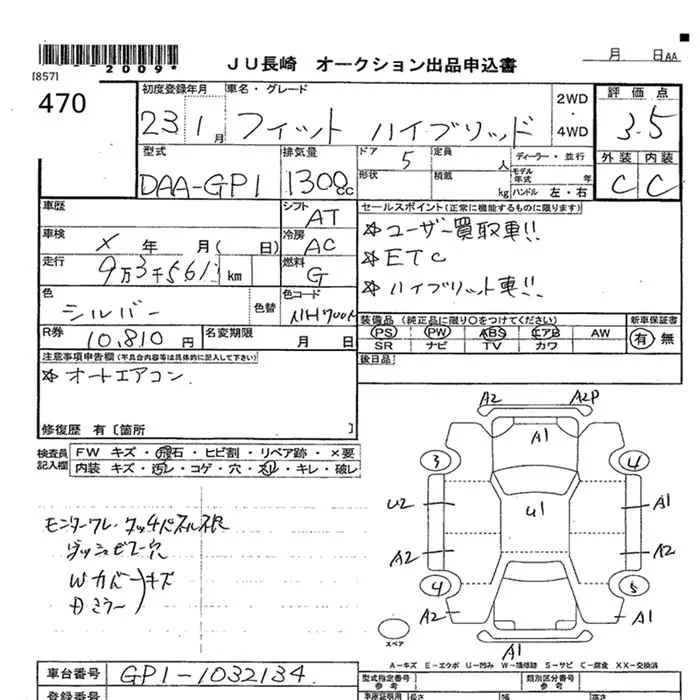 2009*
[857]
JU長崎 オークション出品申込書
月 日 AA
470
初度登録年月 車名・グレード 2WD ・ 4WD 評価点
23 1月 フィット ハイブリッド 3.5
型式 排気量 ドア 5 定員 人 ディーラー・並行 外装 内装
DAA-GP1 1300cc 形状 積載 kg モデル年式 年 ハンドル 左・右 C C
車歴 シフト AT セールスポイント(正常に機能するものに限ります)
車検 X 年 月( 日) 冷房 AC ※ユーザー買取車!!
走行 9万3千561 km 燃料 G ※ETC
色 シルバー 色替 色コード NH700M ※ハイブリット車!!
R券 10,810円 名変期限 月 日
装備品(純正品に限り○をつけてください) 新車保証書
PS PW ABS エアB AW 有 無
SR ナビ TV カワ
注意事項申告欄(不具合内容等は具体的に記入して下さい) 後日品
※オートエアコン
修復歴 有[箇所 ]
検査員記入欄 FW キズ・飛石・ヒビ割・リペア跡・×要
内装 キズ・汚レ・コゲ・穴・スレ・キレ・破レ
ダッシュビス穴
Wカバー キズ
ミラー
A2 A2P
A1
3 4
U2 U1 A1
A2 A2
4 5
A2 A1
スペア
A1
A-キズ E-エクボ U-凹み W-補修跡 S-サビ C-腐食 XX-交換済
車台番号 GP1-1032134 型式指定番号 参考 類別区分番号 参考
登録番号 車庫証明用 参考 長さ 幅 高さ